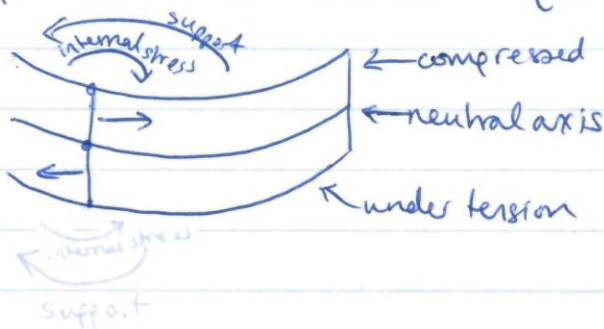 support
internal stress
compressed
neutral axis
under tension
internal stress
support